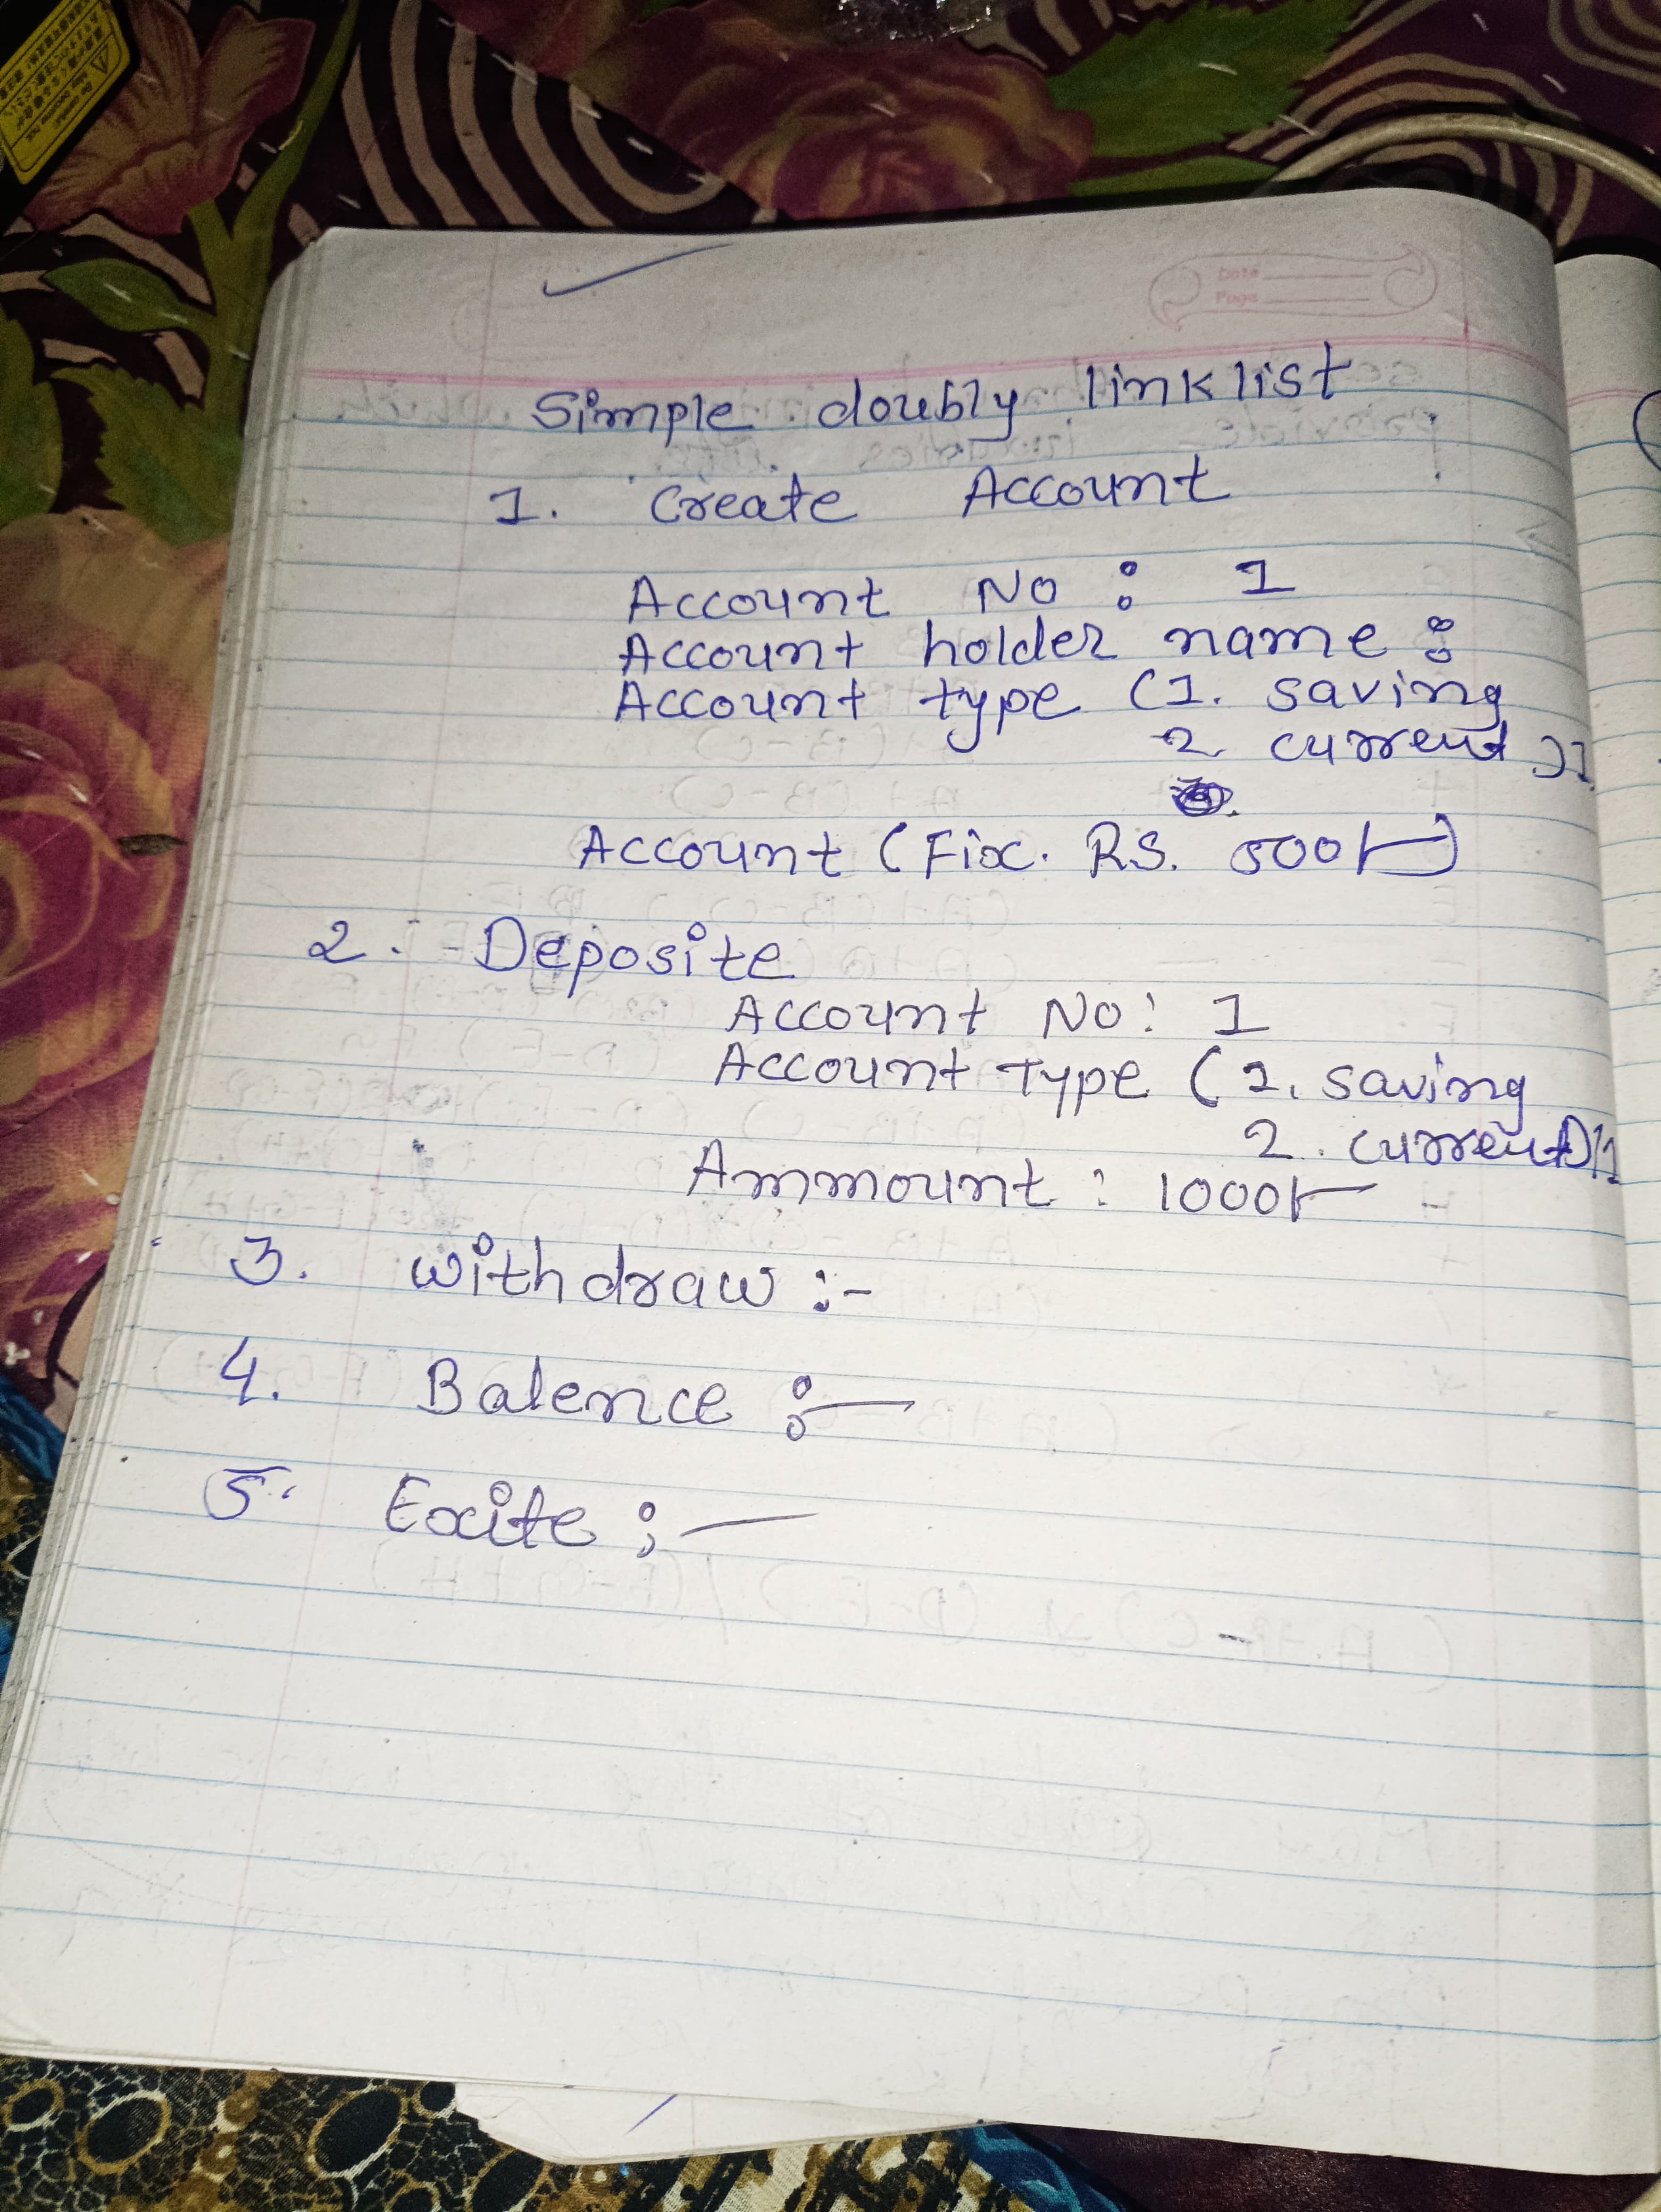 Date
Page
Simple doubly linklist
1. Create Account
Account No : 1
Account holder name :
Account type (1. saving
2. current)1
Account (Fix. RS. 500/-)
2. Deposite
Account No: 1
Account Type (1. saving
2. current)1
Ammount : 1000/-
3. withdraw :-
4. Balence :-
5. Exite ;-